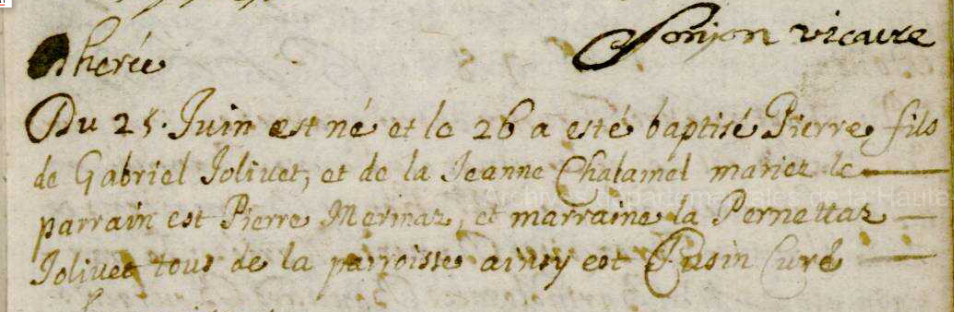 Sonjon vicaire
Du 25. Juin est né et le 26 a esté baptisé Pierre fils
de Gabriel Jolivet, et de la Jeanne Chalamel mariez le
parrain est Pierre Merinaz, et marraine la Pernettaz
Jolivet tous de la parroisse ainsy est Rosin Curé